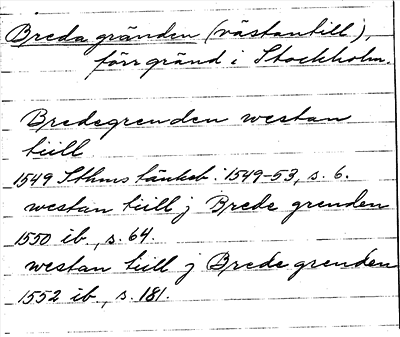 Breda gränden (västantill),
förr gränd i Stockholm.
Bredegrenden westan
tiill
1549 Sthms tänkeb. 1549-53, s. 6.
westan tiill j Brede grenden
1550 ib., s. 64.
westan tiill j Brede grenden
1552 ib., s. 181.